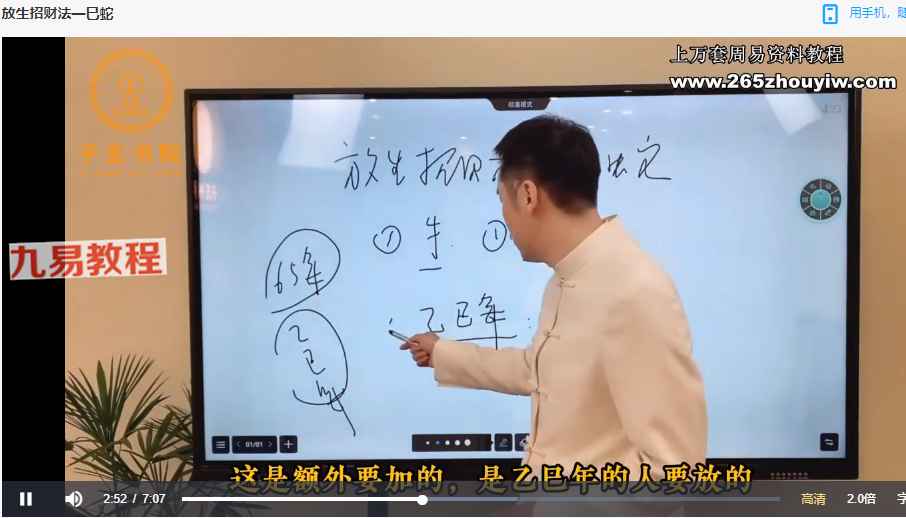 放生招财法—巳蛇
用手机，
上万套周易资料教程
www.265zhouyiw.com
标准模式
放生招财
法定
① 生 ①
65年
九易教程
乙巳年
乙
巳
蛇
01/01
这是额外要加的，是乙巳年的人要放的
2:52 / 7:07
高清
2.0倍
字